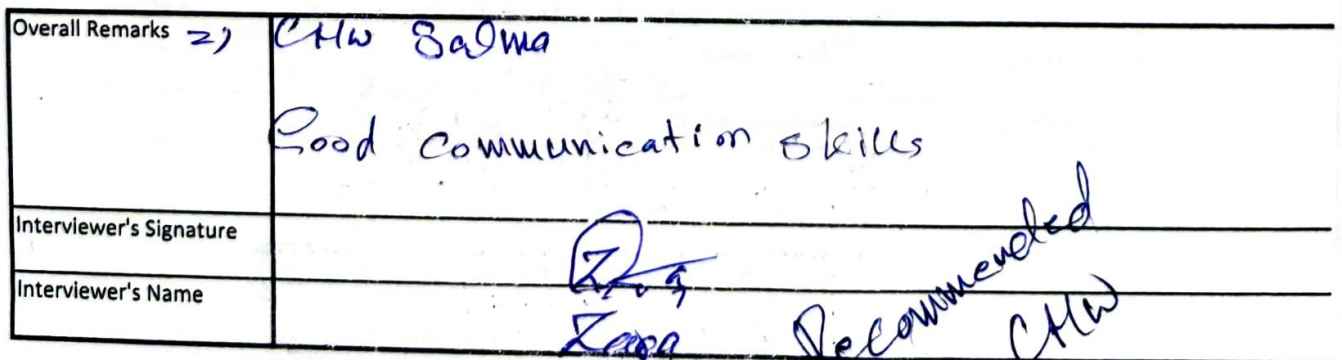 Overall Remarks 2) CHW Salma
Good communication skills
Interviewer's Signature
Interviewer's Name
Recommended
CHW